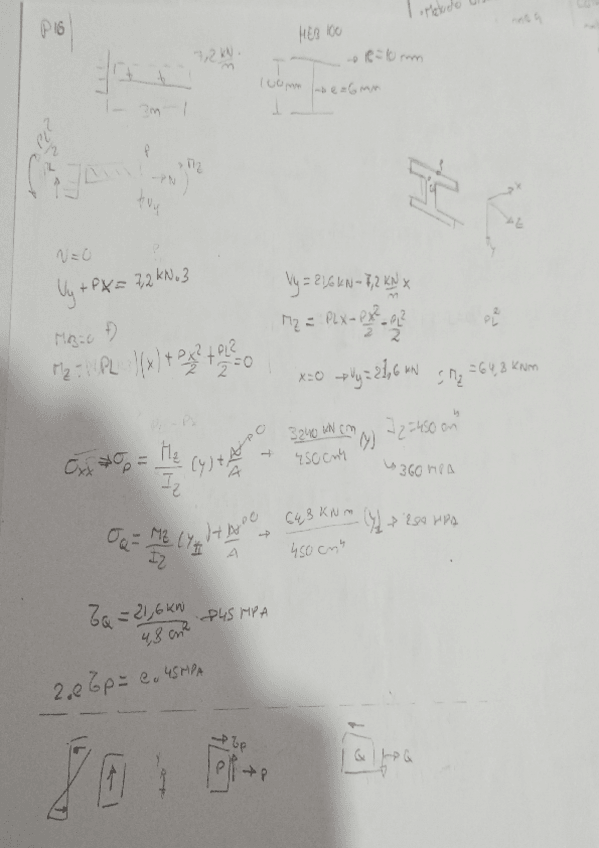 P16
7,2 kN/m
HEB 100
e=10 mm
100mm
e=6mm
3m
PL²/2
PL
P
N
Mz
Vy
x
z
y
N=0
Vy + PX = 7,2 kN.3
Vy = 21,6 kN - 7,2 kN/m x
Mz = PLX - PX²/2 - PL²/2
PL²
(x) + PX²/2 + PL²/2 = 0
x=0 → Vy = 21,6 kN ; Mz = 64,8 KNm
σxx ⇒ σp = Mz/Iz (y) + N/A⁰ → 3240 KN cm/450 cm⁴ (y)
Iz = 450 cm⁴
↳ 360 MPA
σQ = Mz/Iz (yII) + N/A⁰ → 64,8 KNm/450 cm⁴
MPA
τQ = 21,6 kN/4,8 cm² → 45 MPA
2.e τp = e. 45 MPA
σ
Y
τp
P
→ P
Q
→ Q